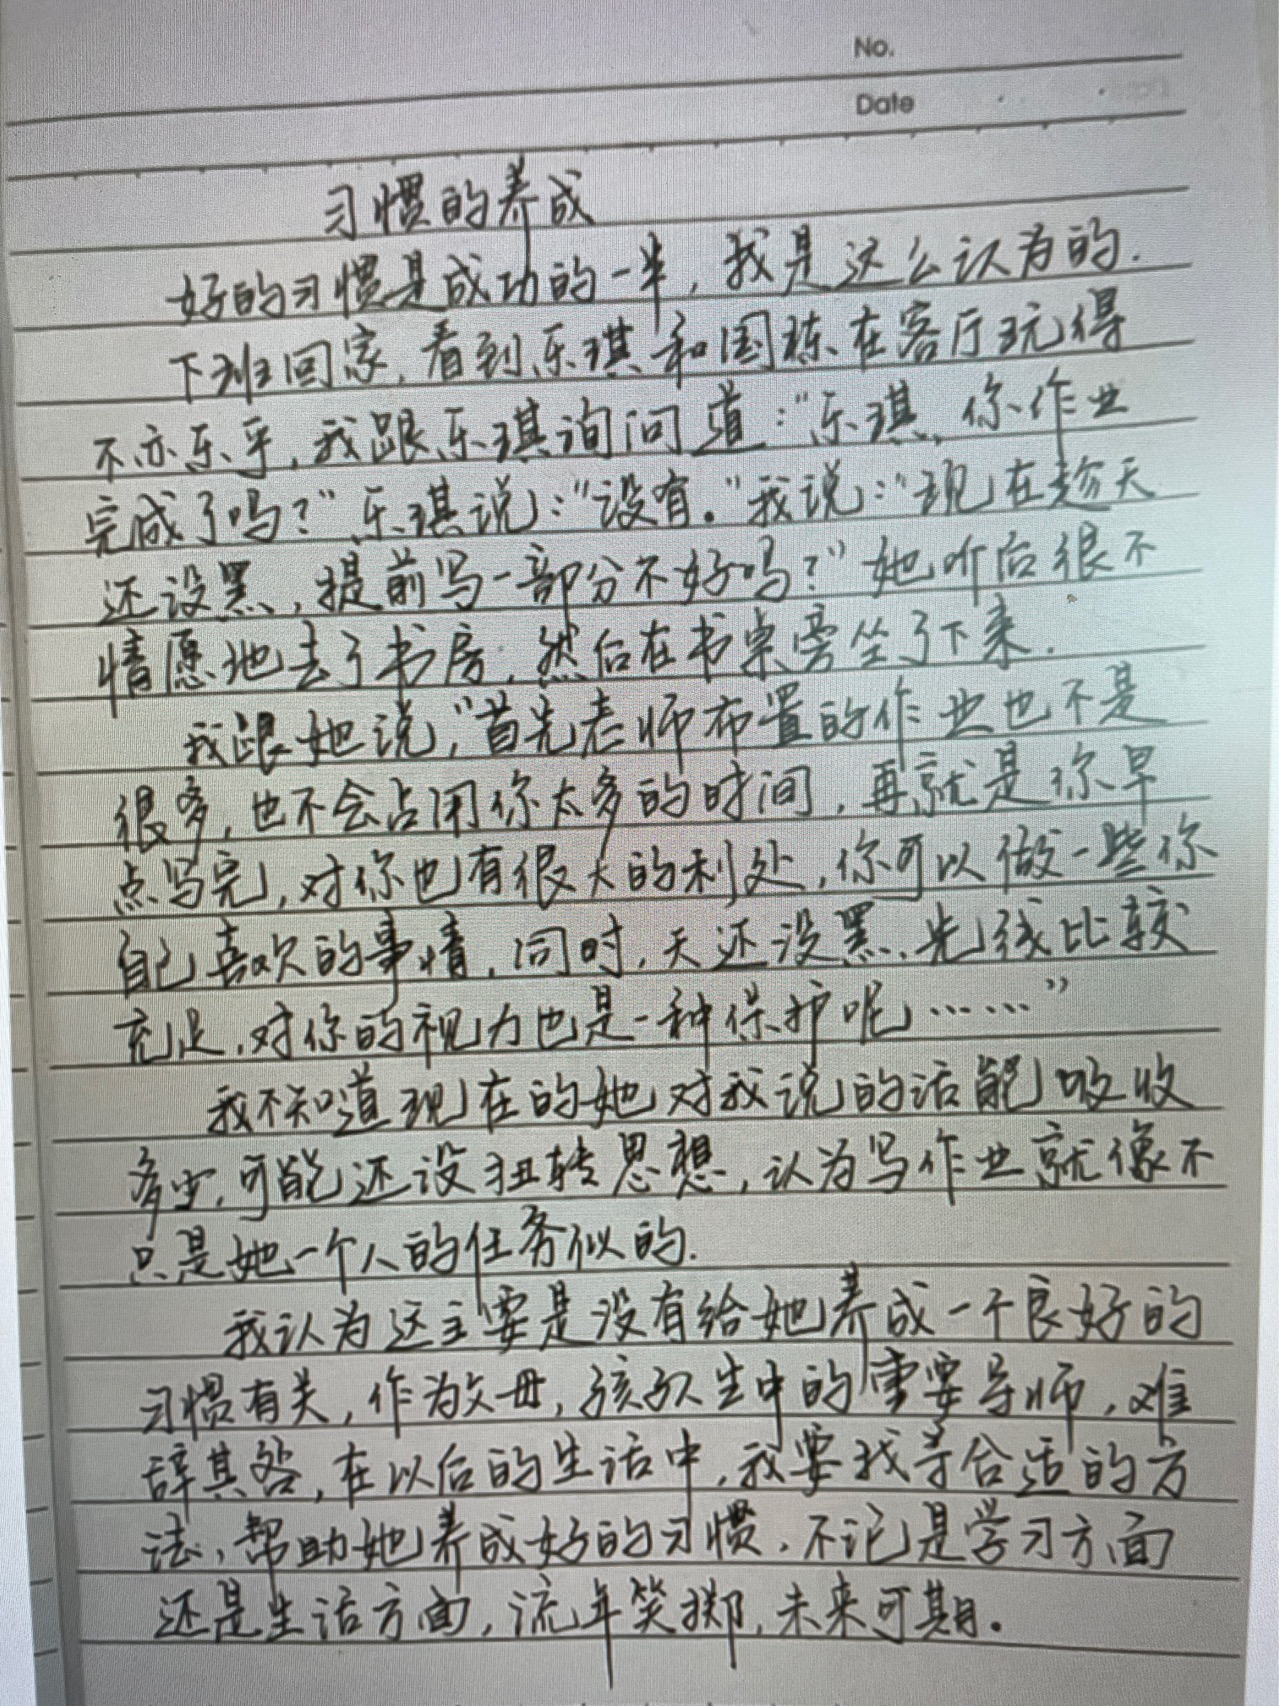 No.
Date
习惯的养成
好的习惯是成功的一半，我是这么认为的.
下班回家，看到乐琪和国栋在客厅玩得
不亦乐乎，我跟乐琪询问道：“乐琪，你作业
完成了吗？”乐琪说：“没有。”我说：“现在趁天
还没黑，提前写一部分不好吗？”她听后很不
情愿地去了书房，然后在书桌旁坐了下来.
我跟她说，“首先老师布置的作业也不是
很多，也不会占用你太多的时间，再就是你早
点写完，对你也有很大的利处，你可以做一些你
自己喜欢的事情，同时，天还没黑、光线比较
充足，对你的视力也是一种保护呢……”
我不知道现在的她对我说的话能吸收
多少，可能还没扭转思想，认为写作业就像不
只是她一个人的任务似的.
我认为这主要是没有给她养成一个良好的
习惯有关，作为父母，孩子人生中的重要导师，难
辞其咎，在以后的生活中，我要找寻合适的方
法，帮助她养成好的习惯，不论是学习方面
还是生活方面，流年笑掷，未来可期。